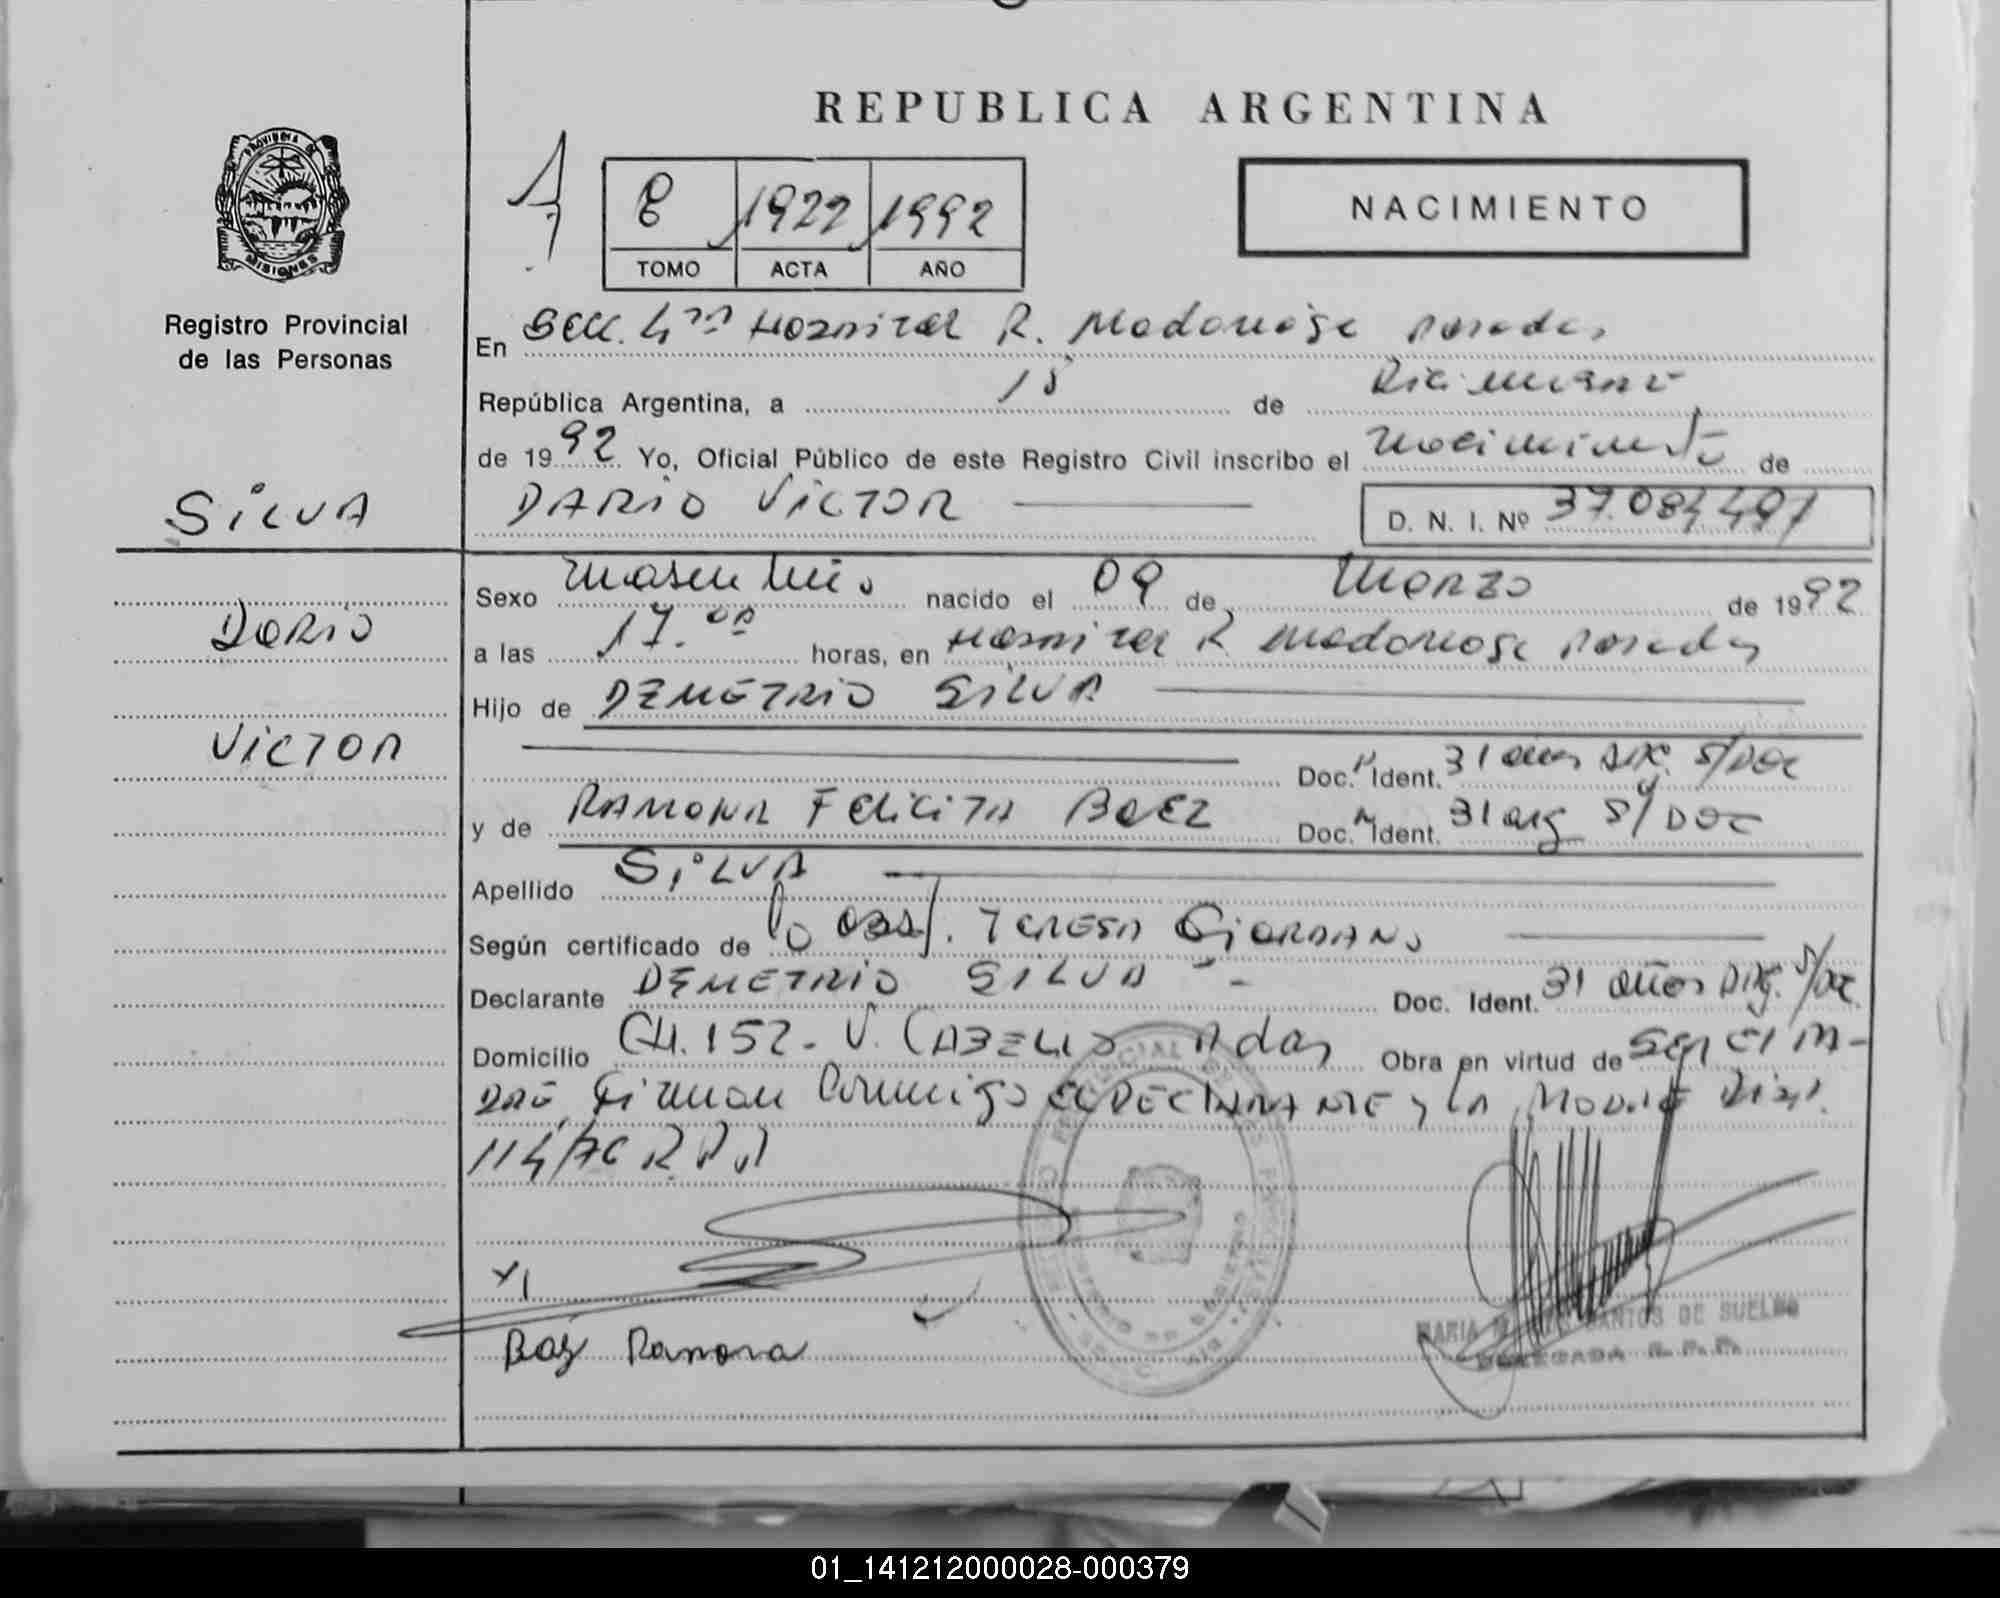 REPUBLICA ARGENTINA
PROVINCIA DE
MISIONES
Registro Provincial
de las Personas
8 1922 1992
TOMO ACTA AÑO
NACIMIENTO
En Secc. 4ta Hospital R. Madariaga Posadas
República Argentina, a 15 de Diciembre
de 1992 Yo, Oficial Público de este Registro Civil inscribo el Nacimiento de
SILVA
DARIO VICTOR
D. N. I. Nº 37.084.491
Sexo Masculino nacido el 09 de Marzo de 1992
DARIO
a las 17.00 horas, en Hospital R Madariaga Posadas
Hijo de DEMETRIO SILVA
VICTOR
Doc. Ident. 31 años ARG. S/DOC
y de RAMONA FELICITA BAEZ Doc. Ident. 31 arg S/DOC
Apellido SILVA
Según certificado de Obst. TERESA GIORDANO
Declarante DEMETRIO SILVA Doc. Ident. 31 años ARG. S/DOC
Domicilio CH. 152 - V. CABELLO Pdas Obra en virtud de
Firman Conmigo el DECLARANTE y LA MADRE Disp.
114/76 R.P.P
Baz Ramona
MARIA SANTOS DE SUELDO
DELEGADA R.P.P.
01_141212000028-000379